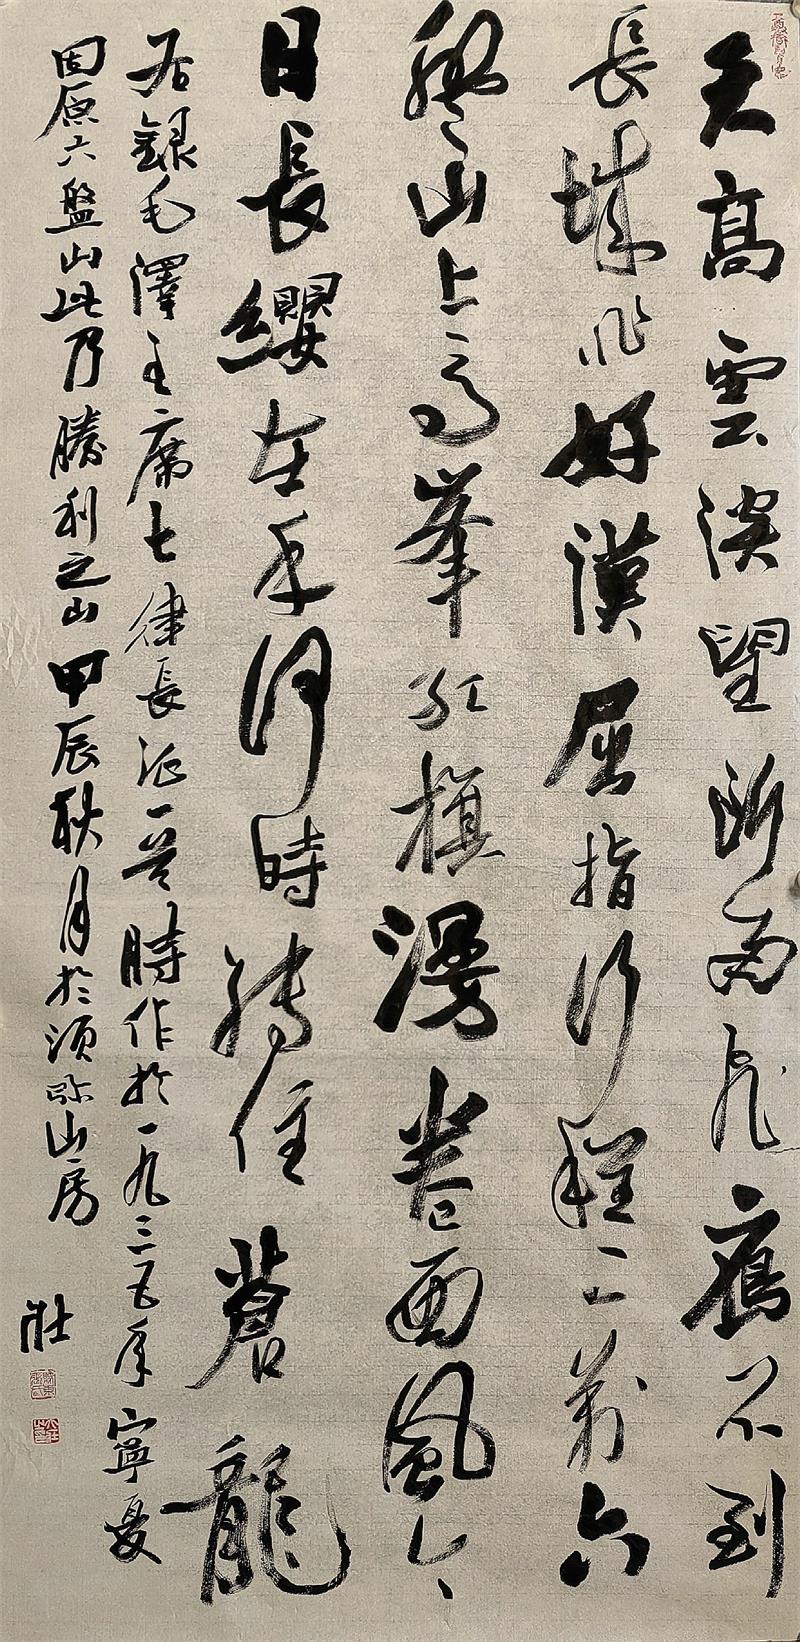 天高雲淡望断南飛雁不到
長城非好漢屈指行程二萬六
盤山上高峯紅旗漫卷西風今
日長纓在手何時縛住蒼龍
右録毛澤主席七律長征一首時作於一九三五年寧夏
固原六盤山此乃勝利之山甲辰秋月於須弥山房
壯